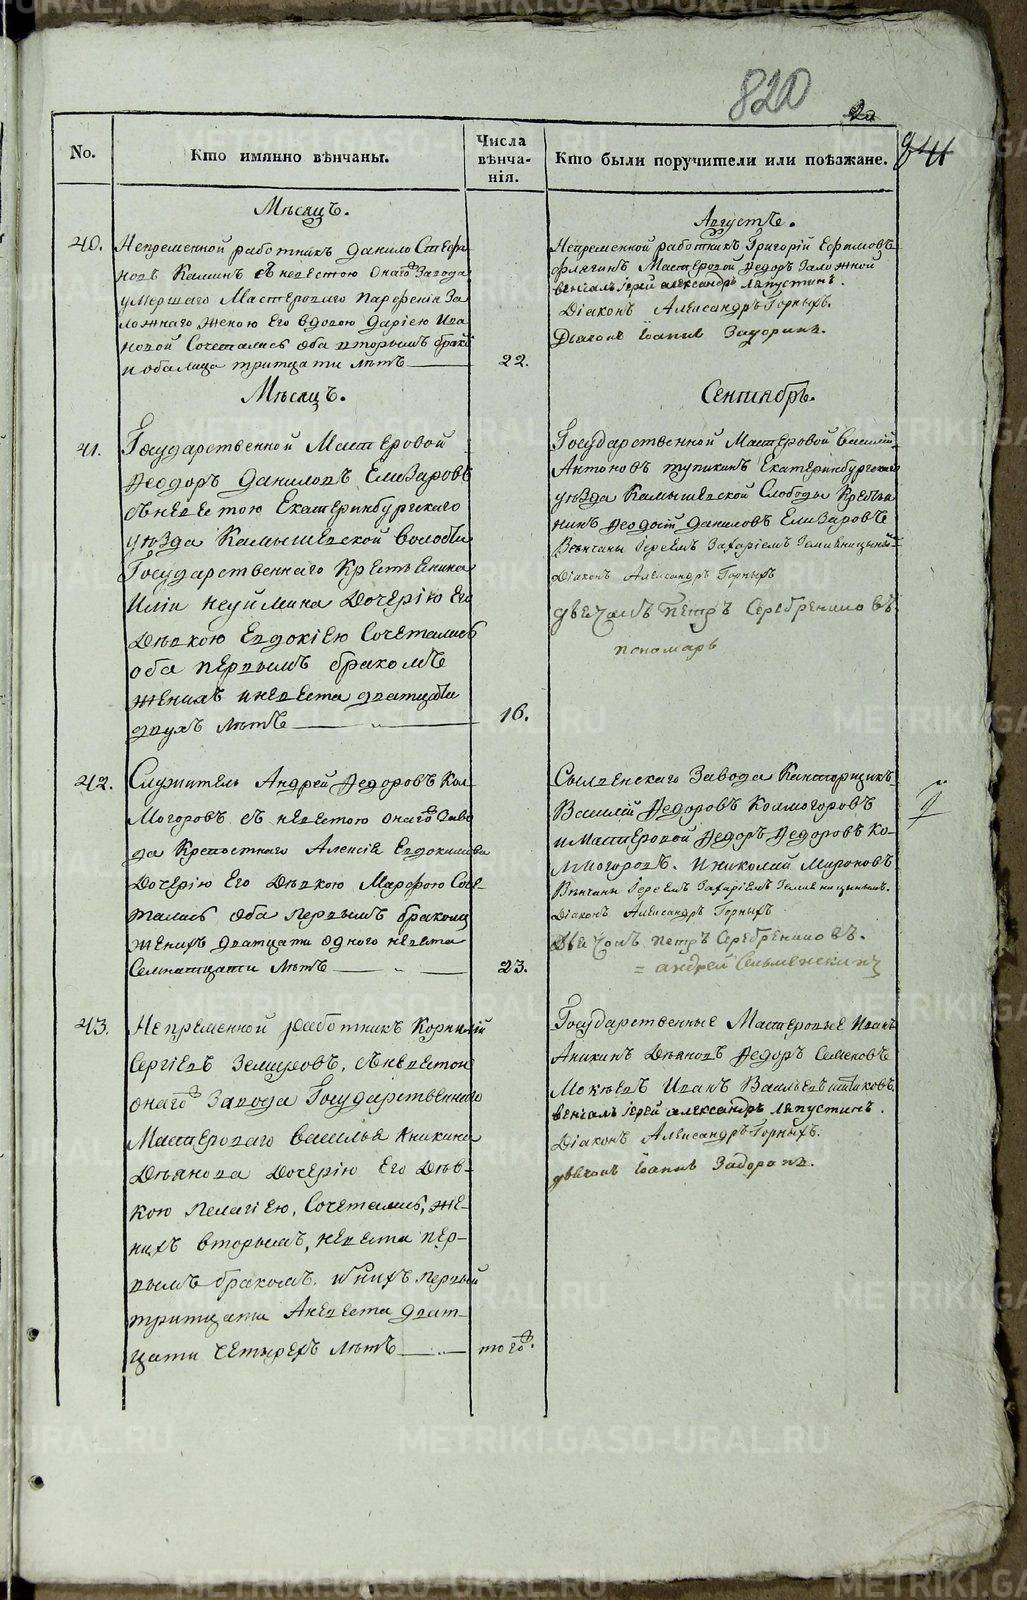 820
No.
Кто имянно вѣнчаны.
Числа
вѣнча-
нія.
Кто были поручители или поѣзжане.
Мѣсяцъ.
Августъ.
40.
Непременной работникъ Данило Стефа-
новъ Каминъ съ невестою онагѡ Завода
умершаго Мастероваго Парфенія За-
ложнаго женою Его вдовою Дарією Ива-
новой Сочетались оба вторымъ бракѡ
и обалица тритцати лѣтъ
22.
Непременной работникъ Григорій Ефимовъ
Мастеровой Ѳедоръ Заложной
венчалъ Іерей Александръ Ляпустинъ.
Діаконъ Александръ Горныхъ.
Дьячокъ Іоаннъ Задоринъ.
Мѣсяцъ.
Сентябрь.
41.
Государственной Мастеровой
Ѳеодоръ Даниловъ Елизаровъ
съ невестою Екатеринбургскаго
уѣзда Камышевской волости
Государственнаго Крестьянина
Иліи Неуймина Дочерію Его
Дѣвкою Евдокією Сочетались
оба первымъ бракомъ
женихъ и невеста дватцати
двухъ лѣтъ
16.
Государственной Мастеровой Василій
Антоновъ Тупикинъ Екатеринбургскаго
уѣзда Камышевской Слободы Крестья-
нинъ Даниловъ Елизаровъ
Венчаны Іереемъ Захаріемъ
Діаконъ Александръ Горныхъ
дьячокъ Петръ Серебрениковъ
пономарь
42.
Служитель Андрей Ѳедоровъ Кол-
могоровъ съ невестою онагѡ Заво-
да Крепостнаго Алексія Евдокимова
Дочерію Его Дѣвкою Марѳою Соче-
тались оба первымъ бракомъ
женихъ дватцати одного невеста
Семнатцати лѣтъ
23.
Сылвенскаго Завода Канторщикъ
Василій Ѳедоровъ Колмогоровъ
и Мастеровой Ѳедоръ Ѳедоровъ Ко-
лмогоровъ. и Николай Мироновъ
Венчаны Іереемъ Захаріемъ
Діаконъ Александръ Горныхъ
Дьячокъ Петръ Серебрениковъ.
= Андрей
43.
Непременной работникъ Корнилій
Сергіевъ Земеровъ, съ невестою
онагѡ Завода Государственнаго
Мастероваго Василья Аникина
Деянова Дочерію Его Дѣв-
кою Пелагією, Сочетались, же-
нихъ вторымъ, невеста пер-
вымъ бракомъ. изъ нихъ первый
тритцати Аневеста дват-
цати четырехъ лѣтъ
тогѡ.
Государственные Мастеровые Иванъ
Аникинъ Деяновъ Ѳедоръ Семеновъ
Мокѣевъ Иванъ Васильевъ
венчалъ Іерей Александръ Ляпустинъ.
Діаконъ Александръ Горныхъ.
дьячокъ Іоаннъ Задоринъ.
METRIKI.GASO-URAL.RU